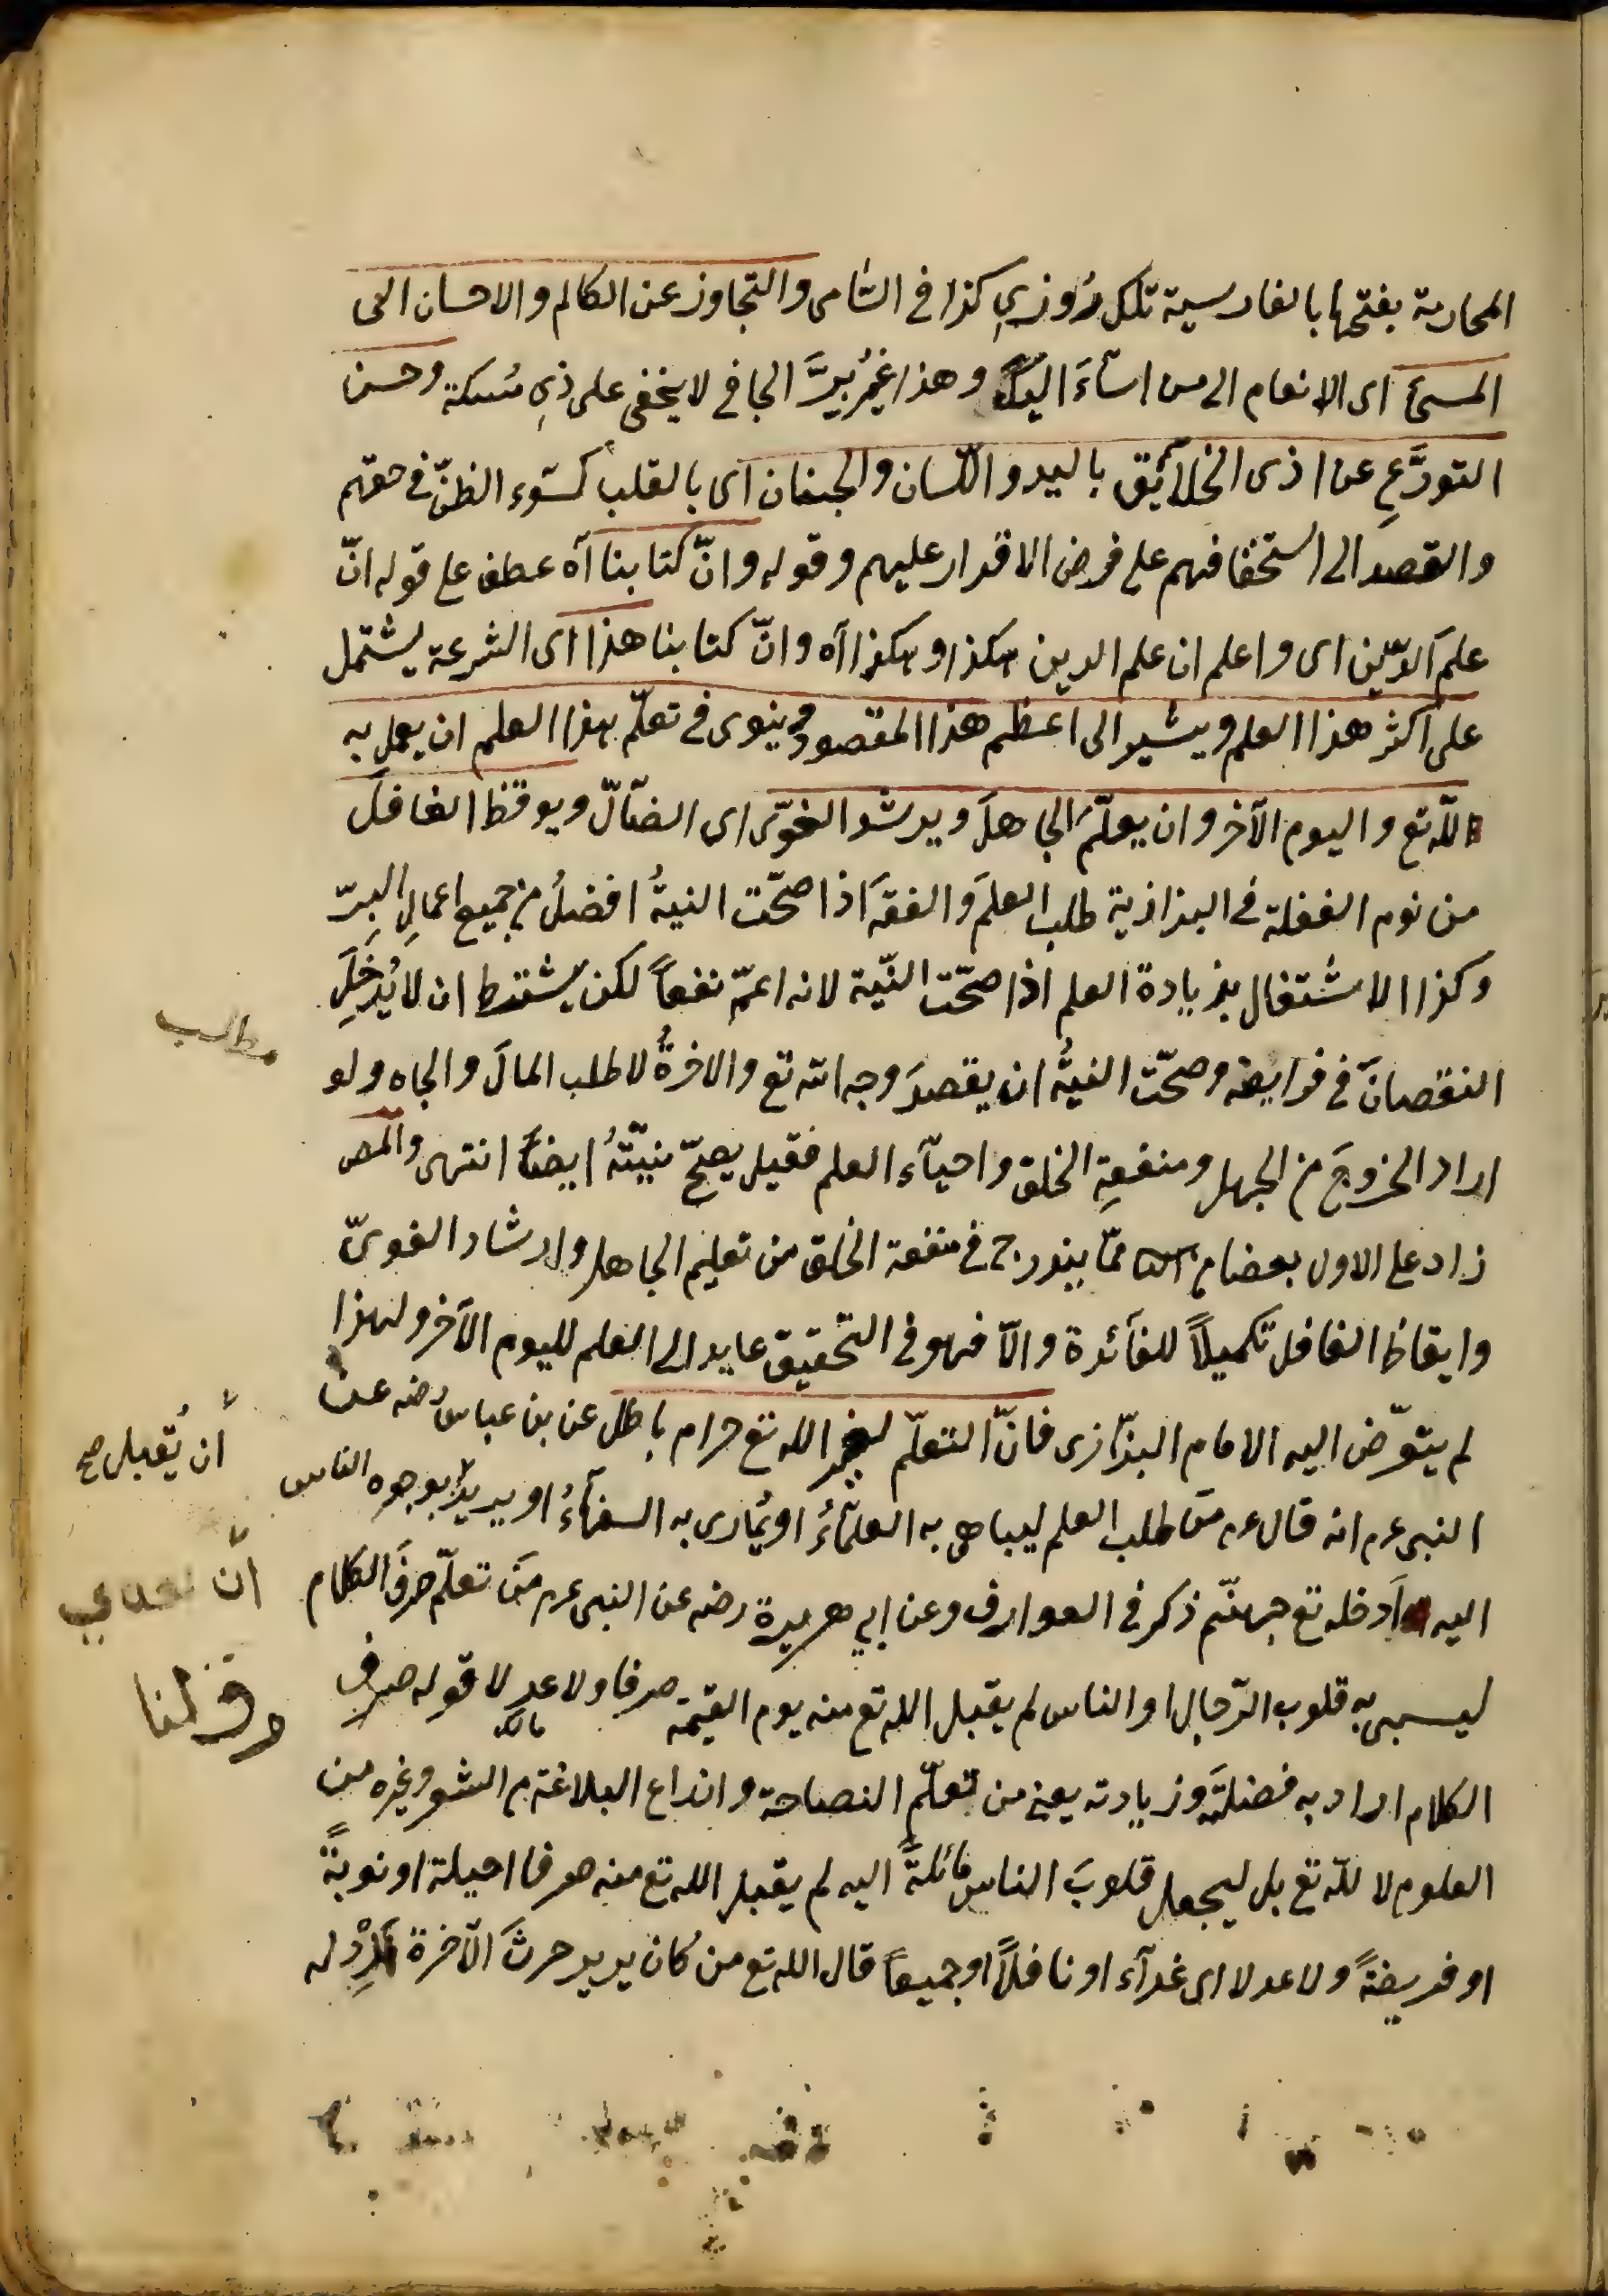 المحاربة بفتحها بالفارسية تلك روزي كذا في الشامى والتجاوز عن الظالم والاحسان الى
المسئ اى الانعام الى من اسآءَ اليك وهذا غير برّ الجافي لا يخفى على ذي مسكة وحسن
التورّعِ عن اذى الخلآئق باليد واللّسان والجنان اى بالقلب كسوء الظنّ في حقهم
والقصد الى استخفافهم على فرض الاقدار عليهم وقوله وانّ كتابنا آه عطف على قوله انّ
علمَ الدّين اى واعلم ان علم الدين هكذا وهكذا آه وانّ كتابنا هذا اى الشرعة يشتمل
على اكثر هذا العلم ويشير الى اعظم هذا المقصود وينوى في تعلّم هذا العلم ان يعمل به
للّه تع واليوم الآخر وان يعلّم الجاهلَ ويرشد الغوىّ اى الضآلّ ويوقظ الغافلَ
من نوم الغفلة في البزازية طلب العلمَ والفقهَ اذا صحّت النيةُ افضلُ من جميع اعمالِ البرّ
وكذا الاشتغال بزيادة العلم اذا صحّت النيّة لانه اعمّ نفعاً لكن يشترط ان لا يُدخِلَ
النقصانَ في فرايضه وصحّت النيةُ ان يقصدَ وجه الله تع والاخرةُ لا طلب المالَ والجاه ولو
اراد الخروجَ من الجهل ومنفعةِ الخلق واحيآء العلم فقيل يصحّ نيّتهُ ايضاً انتهى والمص
زاد على الاول بعضا ممّا يندرج في منفعة الخلق من تعليم الجاهل وارشاد الغوىّ
وايقاظ الغافل تكميلاً للفآئدة والّا فهو في التحقيق عايد الى العلم لليوم الآخر ولهذا
لم يتعرّض اليه الامام البزّازى فانّ التعلّم لغير الله تع حرام باطل عن بن عباس رضه عن
النبى عم انه قال عم من طلب العلم ليباهى به العلمآءُ او يُمارى به السفهآءُ او يريد بوجوه الناس
اليه اَدخله تع جهنّم ذكر في العوارف وعن ابي هريرة رضه عن النبى عم مَن تعلّم صرفَ الكلام
ليسبى به قلوب الرّجال او الناس لم يقبل الله تع منه يوم القيمة صرفا ولا عدلا قوله صرف
الكلام اراد به فضلتَه وزيادته يعنى من تعلّم الفصاحة وانواع البلاغة من الشعر وغيره من
العلوم لا للّه تع بل ليجعل قلوبَ الناس مائلةً اليه لم يقبل الله تع منه صرفا اى حيلة او توبةً
او فريضةً ولا عدلا اى فدآء او نافلةً او جميعاً قال الله تع من كان يريد حرثَ الآخرة نزِدْ له
مطالب
ان يُقبل صح